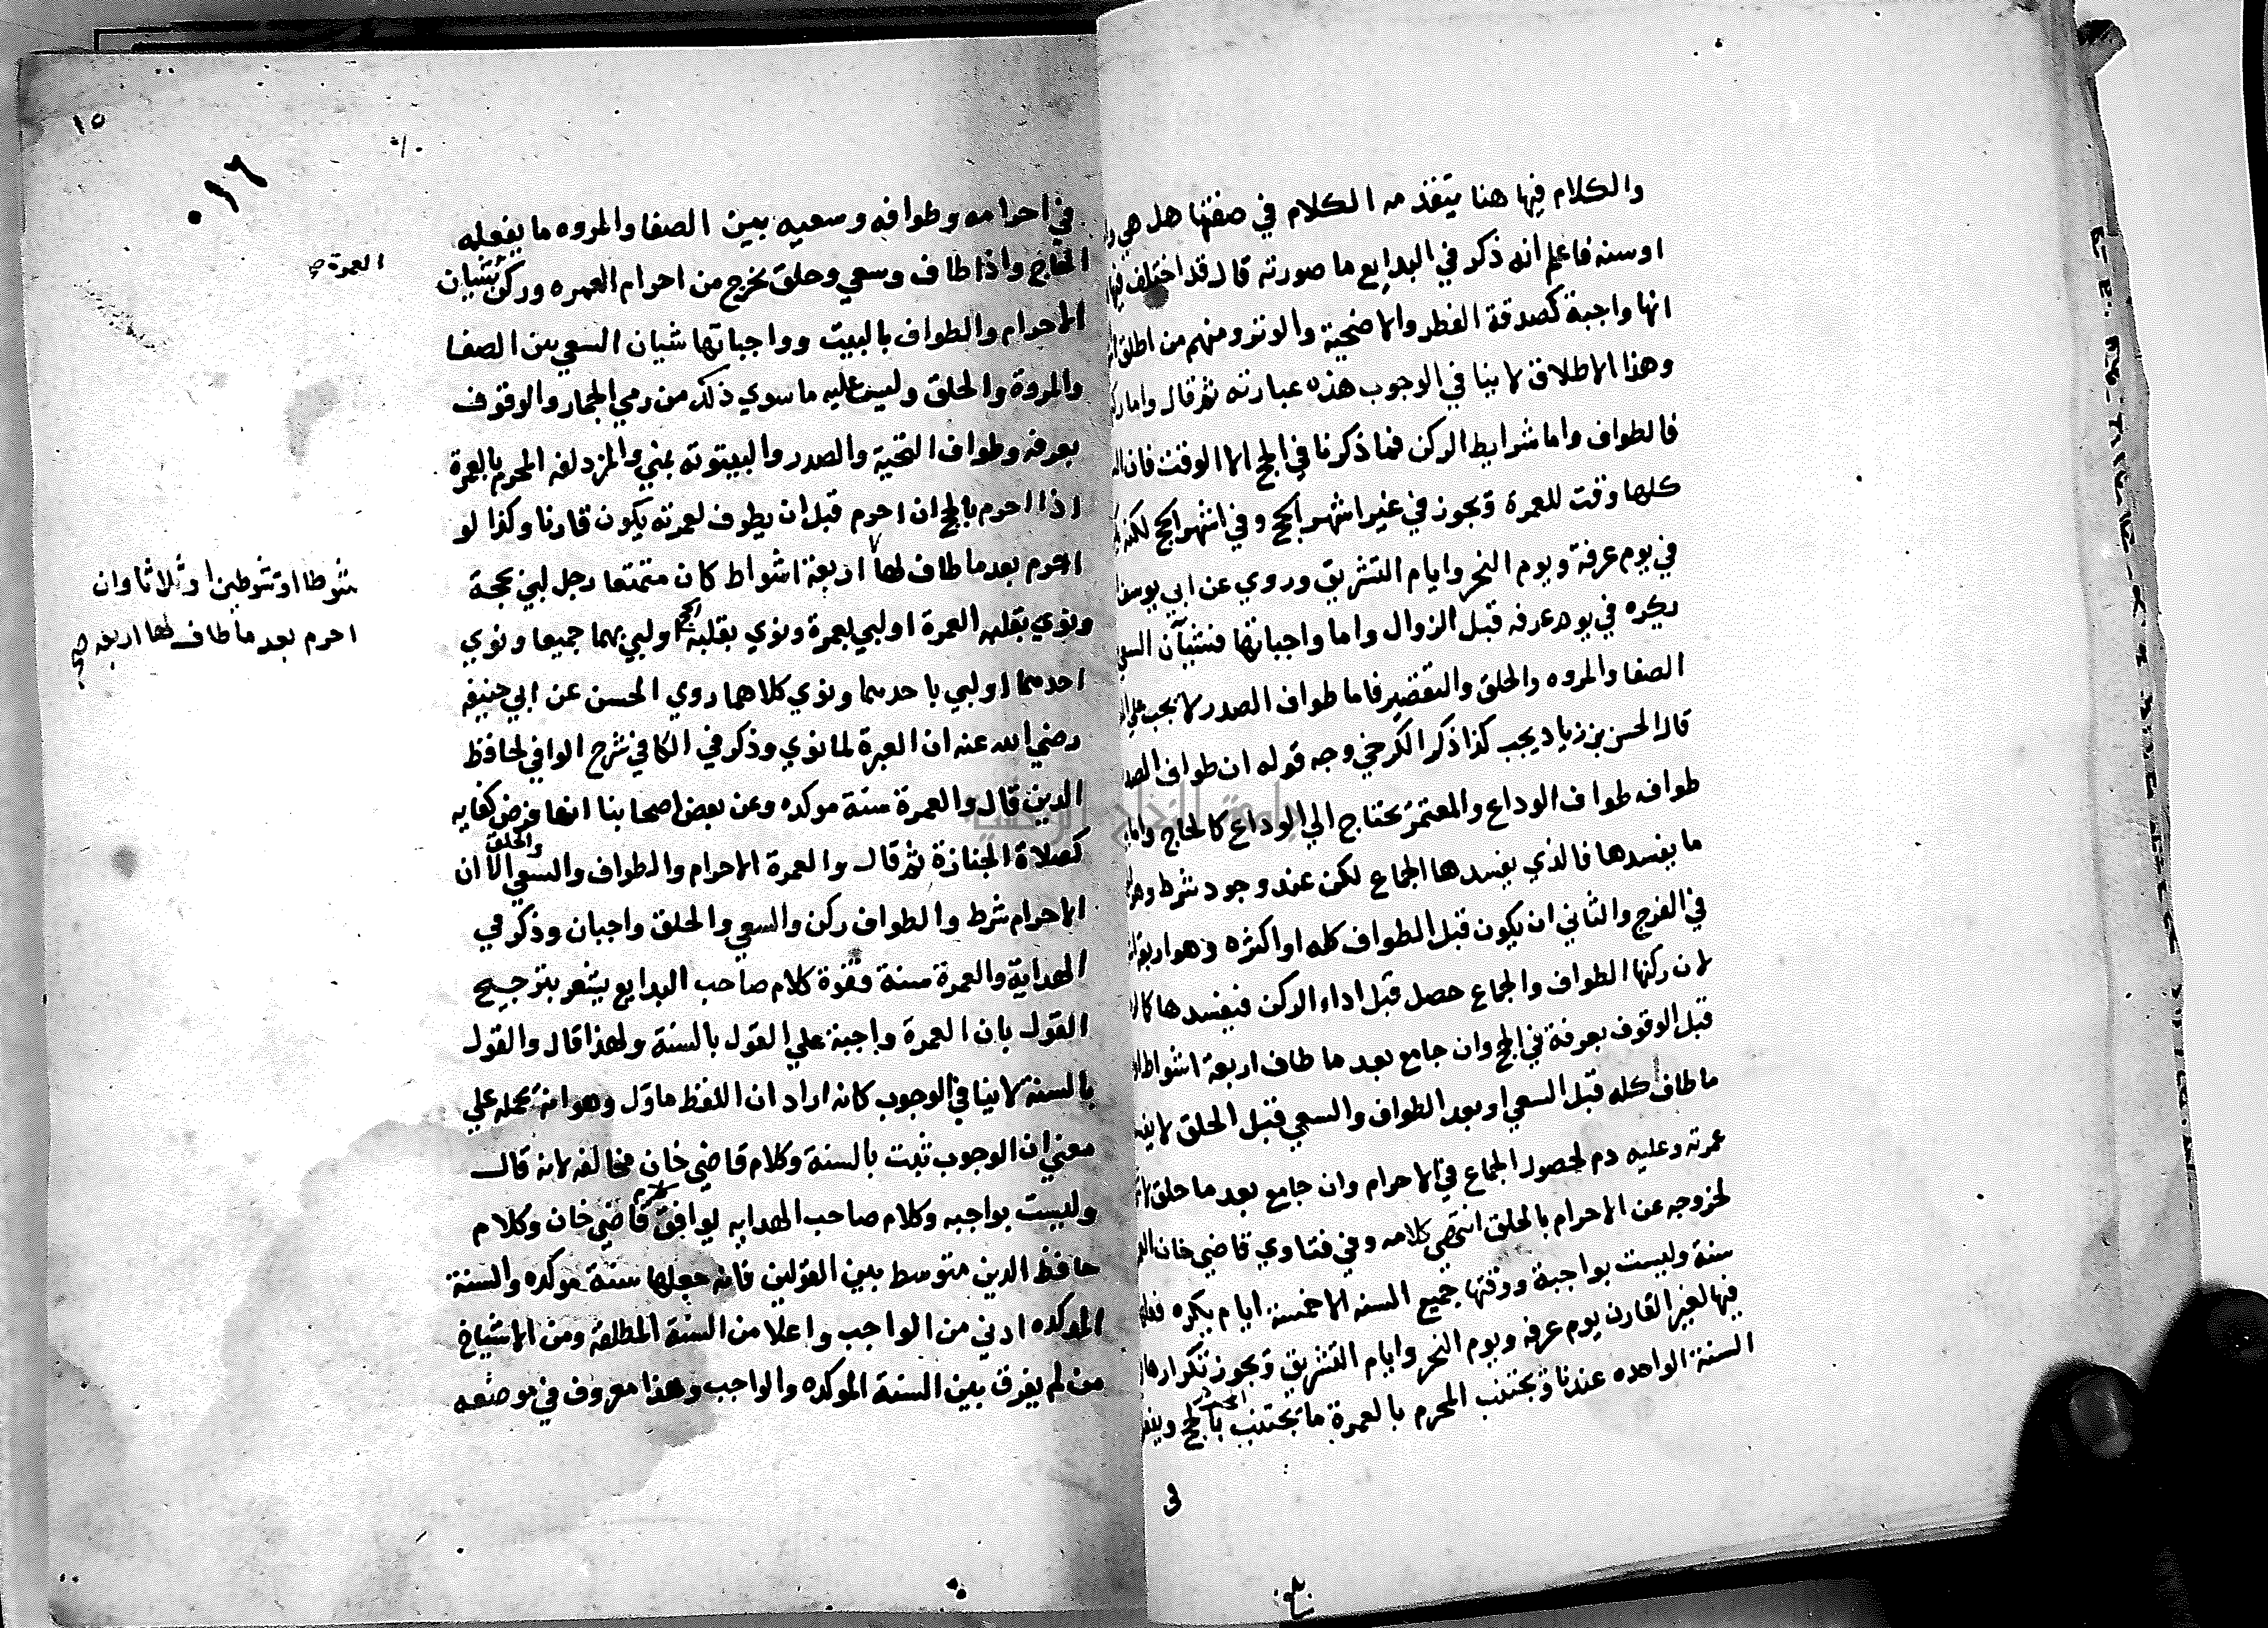 والكلام فيها هنا يتقدمه الكلام في صفتها هل هي
او سنة فاعلم انه ذكر في البدايع ما صورته قال قد اختلف فيها
انها واجبة كصدقة الفطر والاضحية والوتر ومنهم من اطلق
وهذا الاطلاق لا ينا في الوجوب هذه عبارته ثم قال واما
فالطواف واما شرايط الركن فما ذكرنا في الحج الا الوقت فان
كلها وقت للعمرة وتجوز في غير اشهر الحج وفي اشهر الحج لكنه
في يوم عرفة ويوم النحر وايام التشريق وروي عن ابي يوسف
يكره في يوم عرفه قبل الزوال واما واجباتها فشيآن السعي
الصفا والمروه والحلق والتقصير فاما طواف الصدر لا يجب علي
قال الحسن بن زياد يجب كذا ذكر الكرخي وجه قوله ان طواف
طواف طواف الوداع والمعتمر يحتاج الي الوداع كالحاج واما
ما يفسدها فالذي يفسدها الجماع لكن عند وجود شرط وهو
في الفرج والثاني ان يكون قبل الطواف كله او اكثره وهو اربعة
لان ركنها الطواف والجماع حصل قبل اداء الركن فيفسدها
قبل الوقوف بعرفة في الحج وان جامع بعد ما طاف اربعة اشواط
ما طاف كله قبل السعي او بعد الطواف والسعي قبل الحلق لا
عمرته وعليه دم لحصول الجماع في الاحرام وان جامع بعد ما حلق
لخروجه عن الاحرام بالحلق انتهي كلامه وفي فتاوي قاضي خان
سنة وليست بواجبة ووقتها جميع السنه الا خمسة ايام يكره
فيها لغير القارن يوم عرفه ويوم النحر وايام التشريق وتجوز تكرارها
السنة الواحده عندنا ويجتنب المحرم بالعمرة ما يجتنب المحرم بالحج
في
١٥
١٦
في احرامه وطوافه وسعيه بين الصفا والمروه ما يفعله
الحاج واذا طاف وسعي وحلق يخرج من احرام العمره وركن شيان
العمرة صح
الاحرام والطواف بالبيت وواجباتها شيان السعي بين الصفا
والمروة والحلق وليس عليه ما سوي ذلك من رمي الجمار والوقوف
بعرفه وطواف التحية والصدر والبيتوته بمني والمزدلفه المحرم بالعمرة
اذا احرم بالحج ان احرم قبل ان يطوف لعمرته يكون قارنا وكذا لو
احرم بعد ما طاف لها اربعة اشواط كان متمتعا رجل لبي بحجة
شوطا او شوطين او ثلاثا وان
احرم بعد ما طاف لها اربعه صح
ونوي بقلبه العمرة او لبي بعمرة ونوي بقلبه الحج او لبي بهما جميعا ونوي
احدهما او لبي باحدهما ونوي كلاهما روي الحسن عن ابي حنيفه
رضي الله عنه ان العبرة لما نوي وذكر في الكافي شرح الوافي لحافظ
الدين قال والعمرة سنة موكده وعن بعض اصحابنا انها فرض كفايه
كصلاة الجنازة ثم قال والعمرة الاحرام والطواف والسعي والحلق الا ان
الاحرام شرط والطواف ركن والسعي والحلق واجبان وذكر في
الهداية والعمرة سنة فقوة كلام صاحب البدايع يشعر بترجيح
القول بان العمرة واجبة علي القول بالسنة ولهذا قال والقول
بالسنة لا ينا في الوجوب كانه اراد ان اللفظ ماول وهو انه يحمله علي
معني ان الوجوب ثبت بالسنة وكلام قاضي خان مخالفه لانه قال
وليست بواجبه وكلام صاحب الهدايه يوافق كلام قاضي خان وكلام
حافظ الدين متوسط بين القولين فانه جعلها سنة موكده والسنة
الموكده ادني من الواجب واعلا من السنة المطلقة ومن الاشياخ
من لم يفرق بين السنة الموكده والواجب وهذا معروف في موضعه